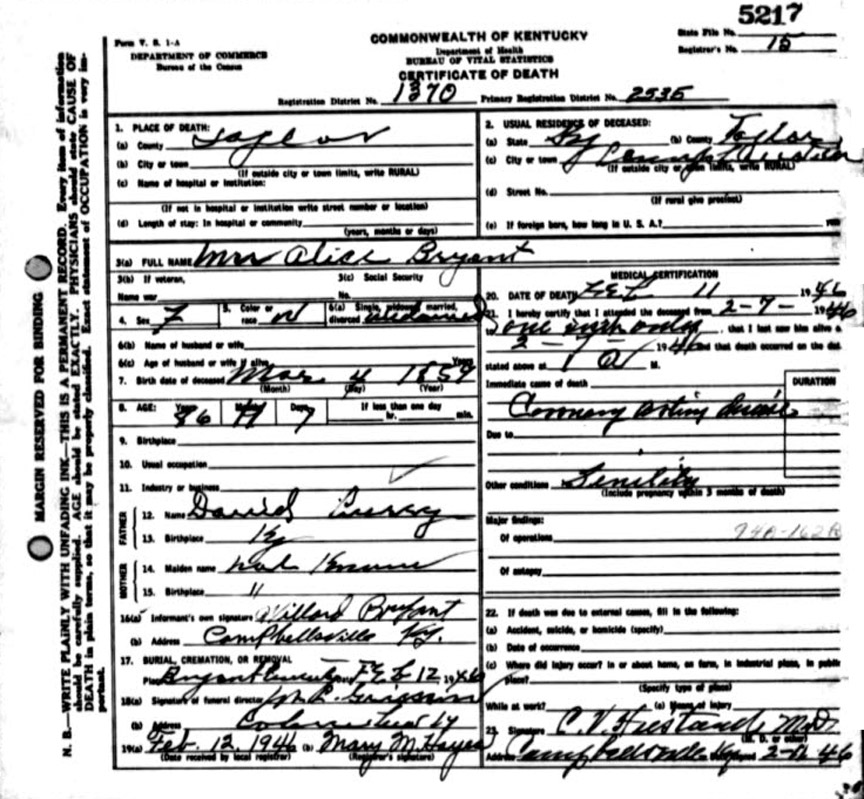 5217
Form V. S. 1-A
DEPARTMENT OF COMMERCE
Bureau of the Census
COMMONWEALTH OF KENTUCKY
Department of Health
BUREAU OF VITAL STATISTICS
CERTIFICATE OF DEATH
State File No.
Registrar's No. 15
Registration District No. 1370 Primary Registration District No. 2535
MARGIN RESERVED FOR BINDING
N. B.—WRITE PLAINLY WITH UNFADING INK—THIS IS A PERMANENT RECORD. Every item of information
should be carefully supplied. AGE should be stated EXACTLY. PHYSICIANS should state CAUSE OF
DEATH in plain terms, so that it may be properly classified. Exact statement of OCCUPATION is very im-
portant.
1. PLACE OF DEATH:
(a) County Taylor
(b) City or town
(If outside city or town limits, write RURAL)
(c) Name of hospital or institution:
(If not in hospital or institution write street number or location)
(d) Length of stay: In hospital or community
(years, months or days)
2. USUAL RESIDENCE OF DECEASED:
(a) State Ky (b) County Taylor
(c) City or town
(If outside city or town limits, write RURAL)
(d) Street No.
(If rural give precinct)
(e) If foreign born, how long in U. S. A.?
3(a) FULL NAME Mrs Alice Bryant
3(b) If veteran,
Name war
3(c) Social Security
No.
4. Sex F 5. Color or race W 6(a) Single, widowed, married, divorced Widowed
6(b) Name of husband or wife
6(c) Age of husband or wife if alive Years
7. Birth date of deceased Mar 4 1859
(Month) (Day) (Year)
8. AGE: Years 86 Months 11 Days 7 If less than one day hr. min.
9. Birthplace
10. Usual occupation
11. Industry or business
FATHER
12. Name David
13. Birthplace Ky
MOTHER
14. Maiden name not Known
15. Birthplace "
16(a) Informant's own signature Willard Bryant
(b) Address Campbellsville Ky.
17. BURIAL, CREMATION, OR REMOVAL
Place Bryant Feb 12 1946
18(a) Signature of funeral director
(b) Address Columbia Ky
19(a) Feb. 12, 1946 (b) Mary M. Hayes
(Date received by local registrar) (Registrar's signature)
MEDICAL CERTIFICATION
20. DATE OF DEATH Feb 11 1946
21. I hereby certify that I attended the deceased from 2-7- 1946
to one visit only, that I last saw him alive o
2-7- 1946 and that death occurred on the dat
stated above at 1 a M.
Immediate cause of death
DURATION
Coronary artery disease
Due to
Other conditions Senility
(Include pregnancy within 3 months of death)
Major findings:
Of operations
94A-162B
Of autopsy
22. If death was due to external causes, fill in the following:
(a) Accident, suicide, or homicide (specify)
(b) Date of occurrence
(c) Where did injury occur? In or about home, on farm, in industrial place, in public
place?
(Specify type of place)
While at work? (e) Means of injury
23. Signature C. V. Hiestand M.D.
(M. D. or other)
Address Campbellsville Ky signed 2-11-46